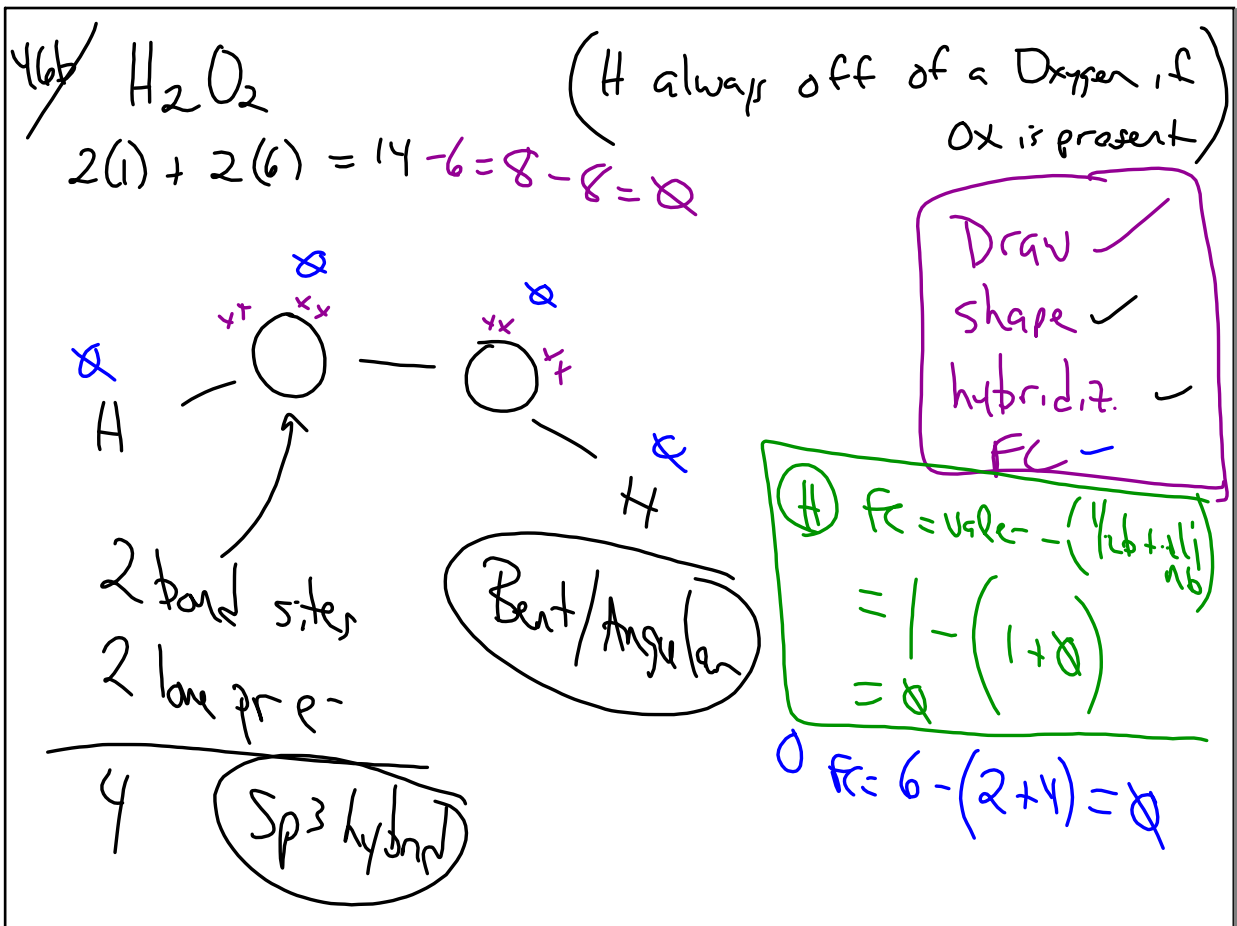 46b/ H₂O₂
(H always off of a Oxygen if
Ox is present)
2(1) + 2(6) = 14 - 6 = 8 - 8 = Ø
Draw ✓
shape ✓
hybridiz. ✓
FC ✓
Ø Ø
xx xx xx xx
Ø H O — O H Ø
2 bond sites
2 lone pr e-
4 Sp3 hybrid
Bent/Angular
H FC = vale- - (1/2b + all nb)
= 1 - (1 + Ø)
= Ø
O FC = 6 - (2 + 4) = Ø